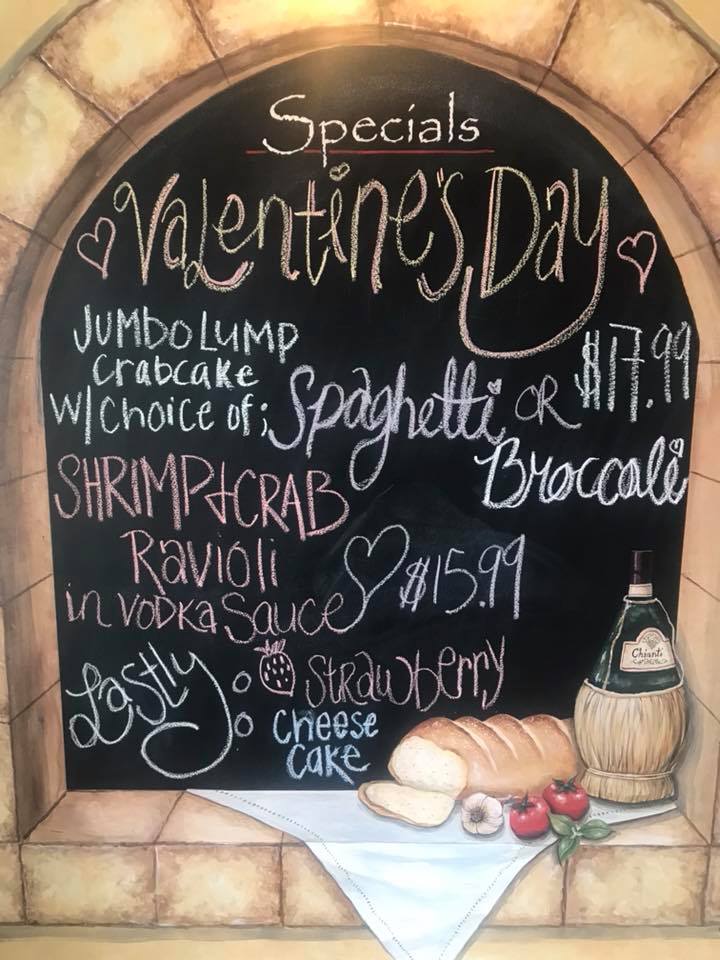 Specials
Valentine's Day
JUMBO LUMP
Crabcake
W/Choice of; Spaghetti OR $17.99
Broccoli
SHRIMP & CRAB
Ravioli
in Vodka Sauce $15.99
Lastly: Strawberry
Cheese
Cake
Chianti